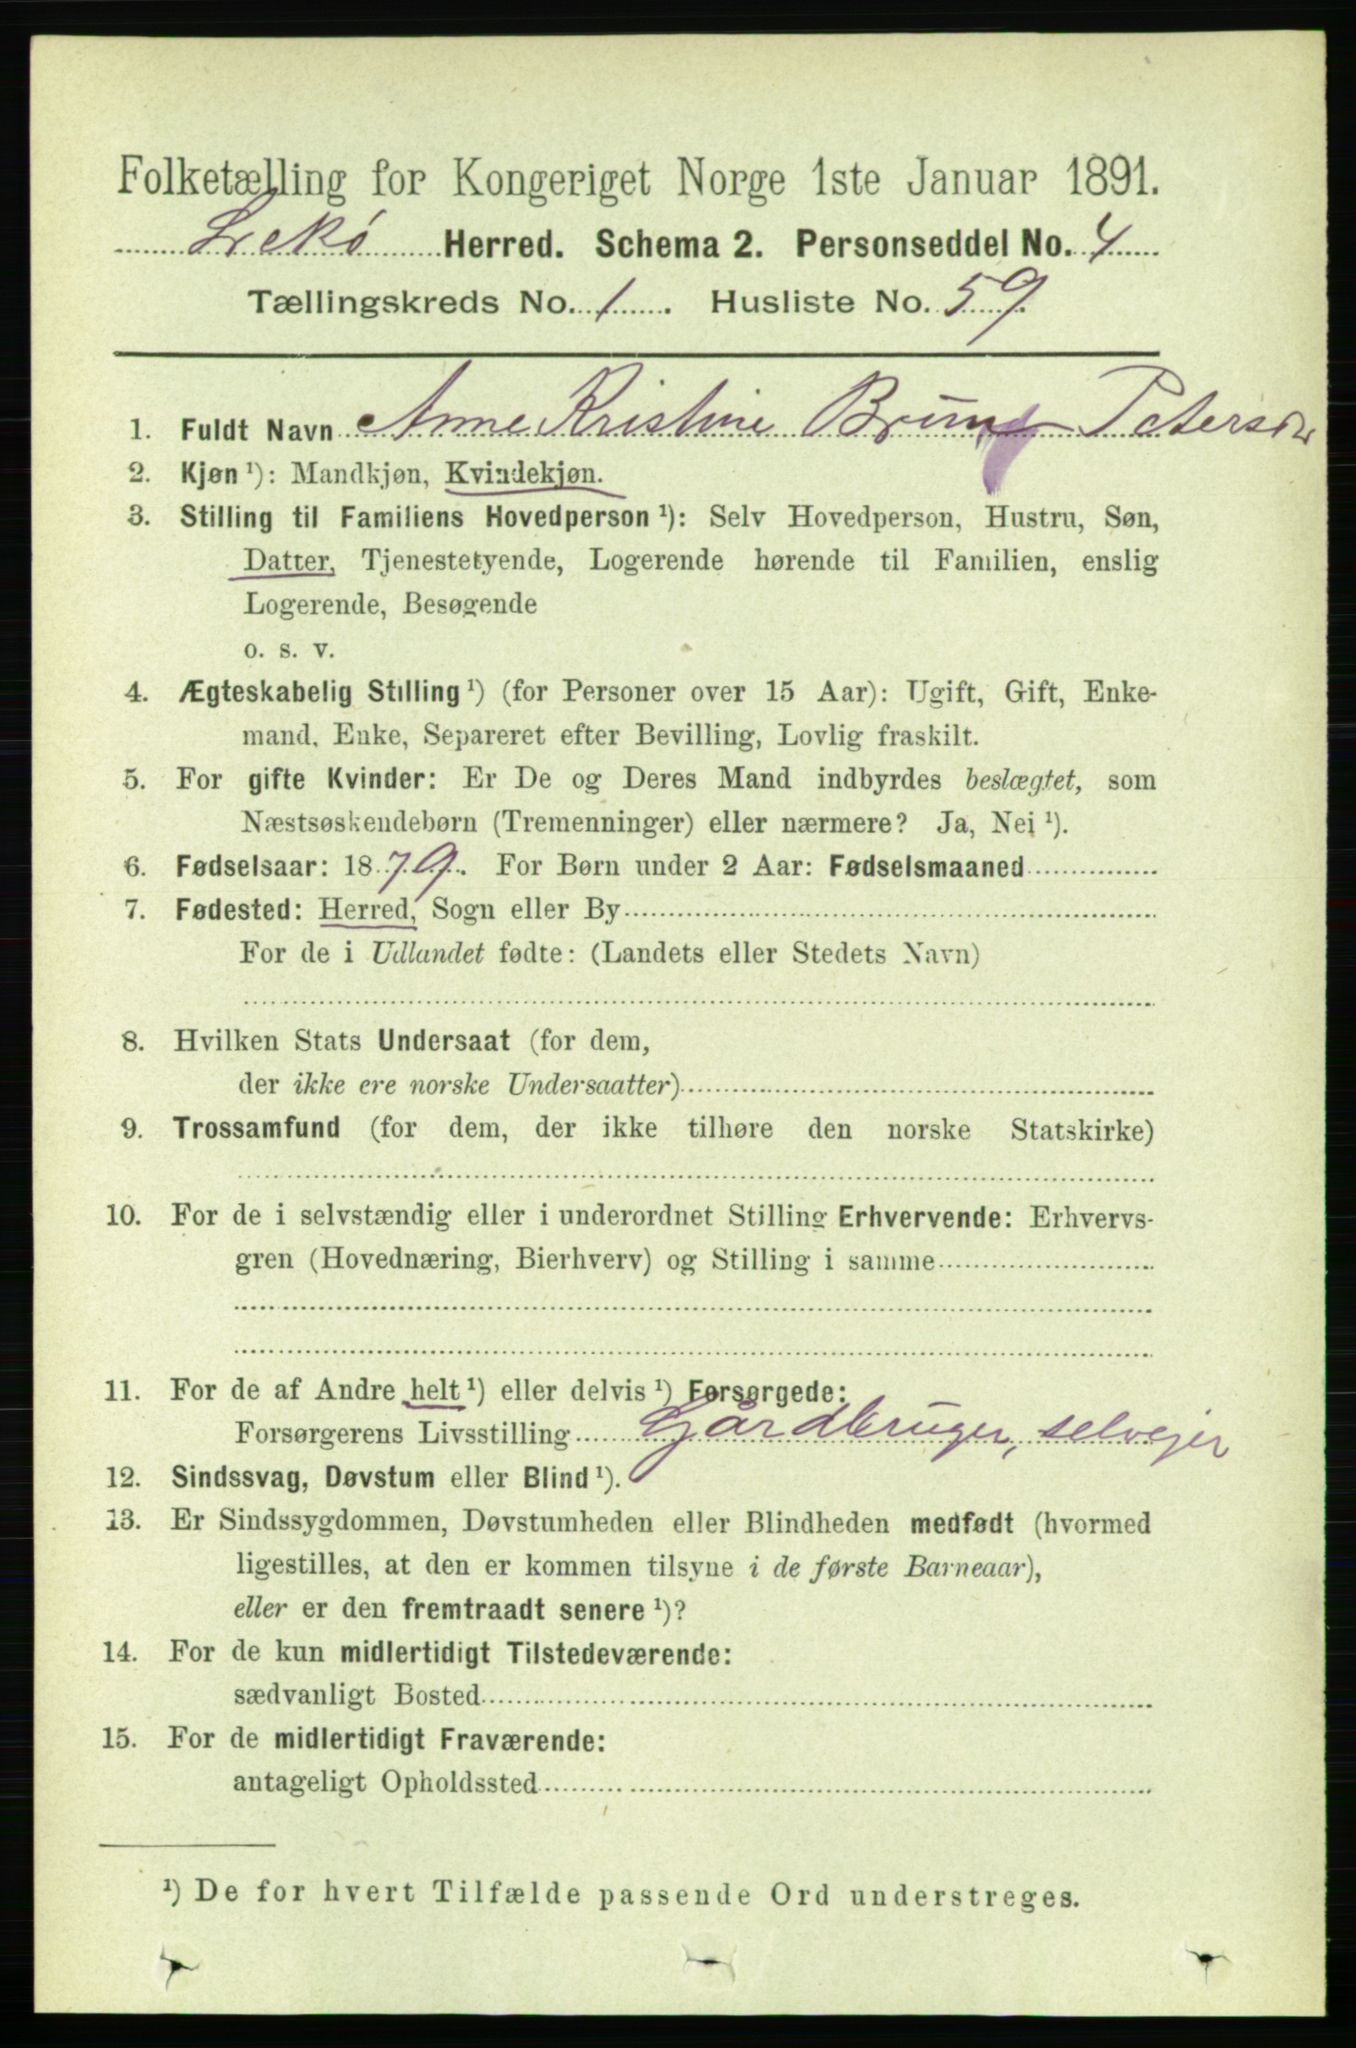 Folketælling for Kongeriget Norge 1ste Januar 1891.
Lekø Herred. Schema 2. Personseddel No. 4
Tællingskreds No. 1. Husliste No. 59
1. Fuldt Navn Anne Kristine Petersdr
2. Kjøn ¹): Mandkjøn, Kvindekjøn.
3. Stilling til Familiens Hovedperson ¹): Selv Hovedperson, Hustru, Søn,
Datter, Tjenestetyende, Logerende hørende til Familien, enslig
Logerende, Besøgende
o. s. v.
4. Ægteskabelig Stilling ¹) (for Personer over 15 Aar): Ugift, Gift, Enke-
mand, Enke, Separeret efter Bevilling, Lovlig fraskilt.
5. For gifte Kvinder: Er De og Deres Mand indbyrdes beslægtet, som
Næstsøskendebørn (Tremenninger) eller nærmere? Ja, Nei ¹).
6. Fødselsaar: 1879. For Børn under 2 Aar: Fødselsmaaned
7. Fødested: Herred, Sogn eller By
For de i Udlandet fødte: (Landets eller Stedets Navn)
8. Hvilken Stats Undersaat (for dem,
der ikke ere norske Undersaatter)
9. Trossamfund (for dem, der ikke tilhøre den norske Statskirke)
10. For de i selvstændig eller i underordnet Stilling Erhvervende: Erhvervs-
gren (Hovednæring, Bierhverv) og Stilling i samme
11. For de af Andre helt ¹) eller delvis ¹) Forsørgede:
Forsørgerens Livsstilling Gårdbruger, selvejer
12. Sindssvag, Døvstum eller Blind ¹).
13. Er Sindssygdommen, Døvstumheden eller Blindheden medfødt (hvormed
ligestilles, at den er kommen tilsyne i de første Barneaar),
eller er den fremtraadt senere ¹)?
14. For de kun midlertidigt Tilstedeværende:
sædvanligt Bosted
15. For de midlertidigt Fraværende:
antageligt Opholdssted
¹) De for hvert Tilfælde passende Ord understreges.